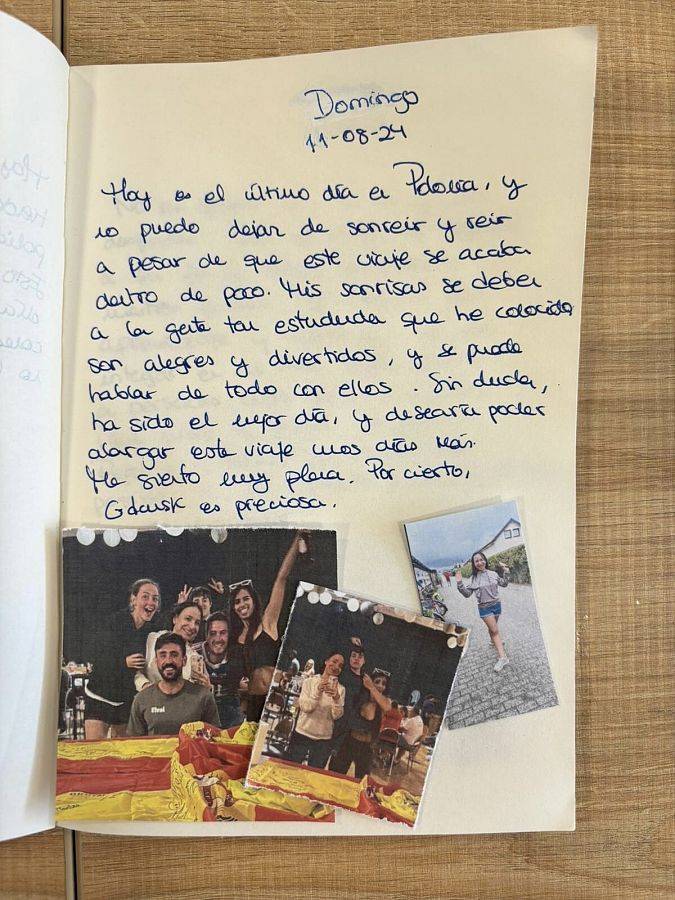 Domingo
11-08-24
Hoy es el último día en Polonia, y
no puedo dejar de sonreir y reir
a pesar de que este viaje se acaba
dentro de poco. Mis sonrisas se deben
a la gente tan estupenda que he conocido
son alegres y divertidos, y se puede
hablar de todo con ellos. Sin duda,
ha sido el mejor día, y desearía poder
alargar este viaje unos días más.
Me siento muy plena. Por cierto,
Gdansk es preciosa.